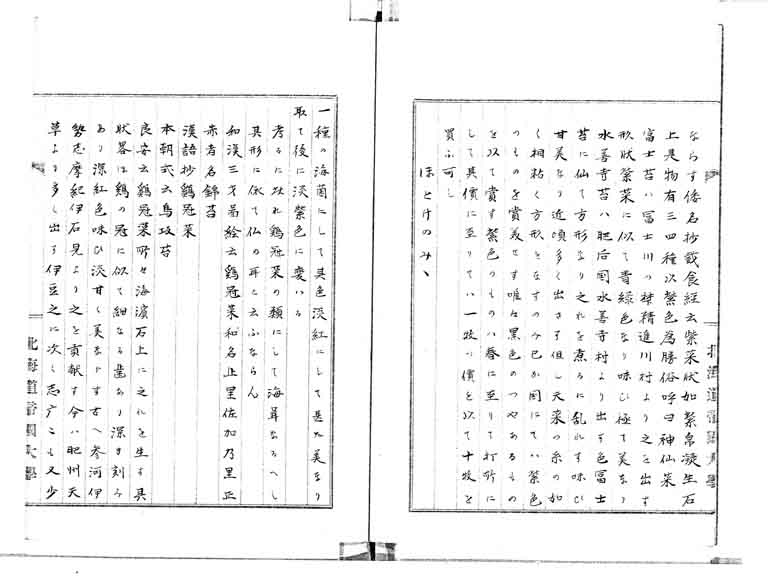 ならす倭名抄戴食経云紫菜状如紫帛凝生石
上是物有三四種以紫色為勝俗呼曰神仙菜
富士苔ハ冨士川の埜精進川村より之を出す
形状紫菜に似て青緑色なり味ひ極て美なり
水善寺苔ハ肥后国水善寺村より出す色冨士
苔に仙て方形なり之れを煮るに乱れす味ひ
甘美なり近頃多く出さす但し天菜の糸の如
く相粘く方形となすのみ己か国にてハ紫色
のものを賞美せす唯々黒色のつやあるもの
を以て賞す紫色のものハ春に至りて打所に
して其價に至りてハ一枚の價を以て十枚を
買ふ可し
ほとけのみゝ
一種の海菌にして其色淡紅にして甚た美なり
取て後に淡紫色に変ハる
考るに此れ鶏冠菜の類にして海茸なるへし
其形に依て仏の耳と云ふならん
和漢三才圖絵云鶏冠菜和名止里佐加乃里正
赤者名錦苔
漢語抄鶏冠菜
本朝式云鳥坂苔
良安云鶏冠菜所々海濱石上に之れを生す其
状畧ほ鶏の冠に似て細なる歯あり深き刻み
あり深紅色味ひ淡甘く美ならす古ヘ参河伊
勢志摩紀伊石見より之を貢献す今ハ肥州天
草より多く出つ伊豆之に次く志广にも又少
北海道帝国大學
北海道帝国大學